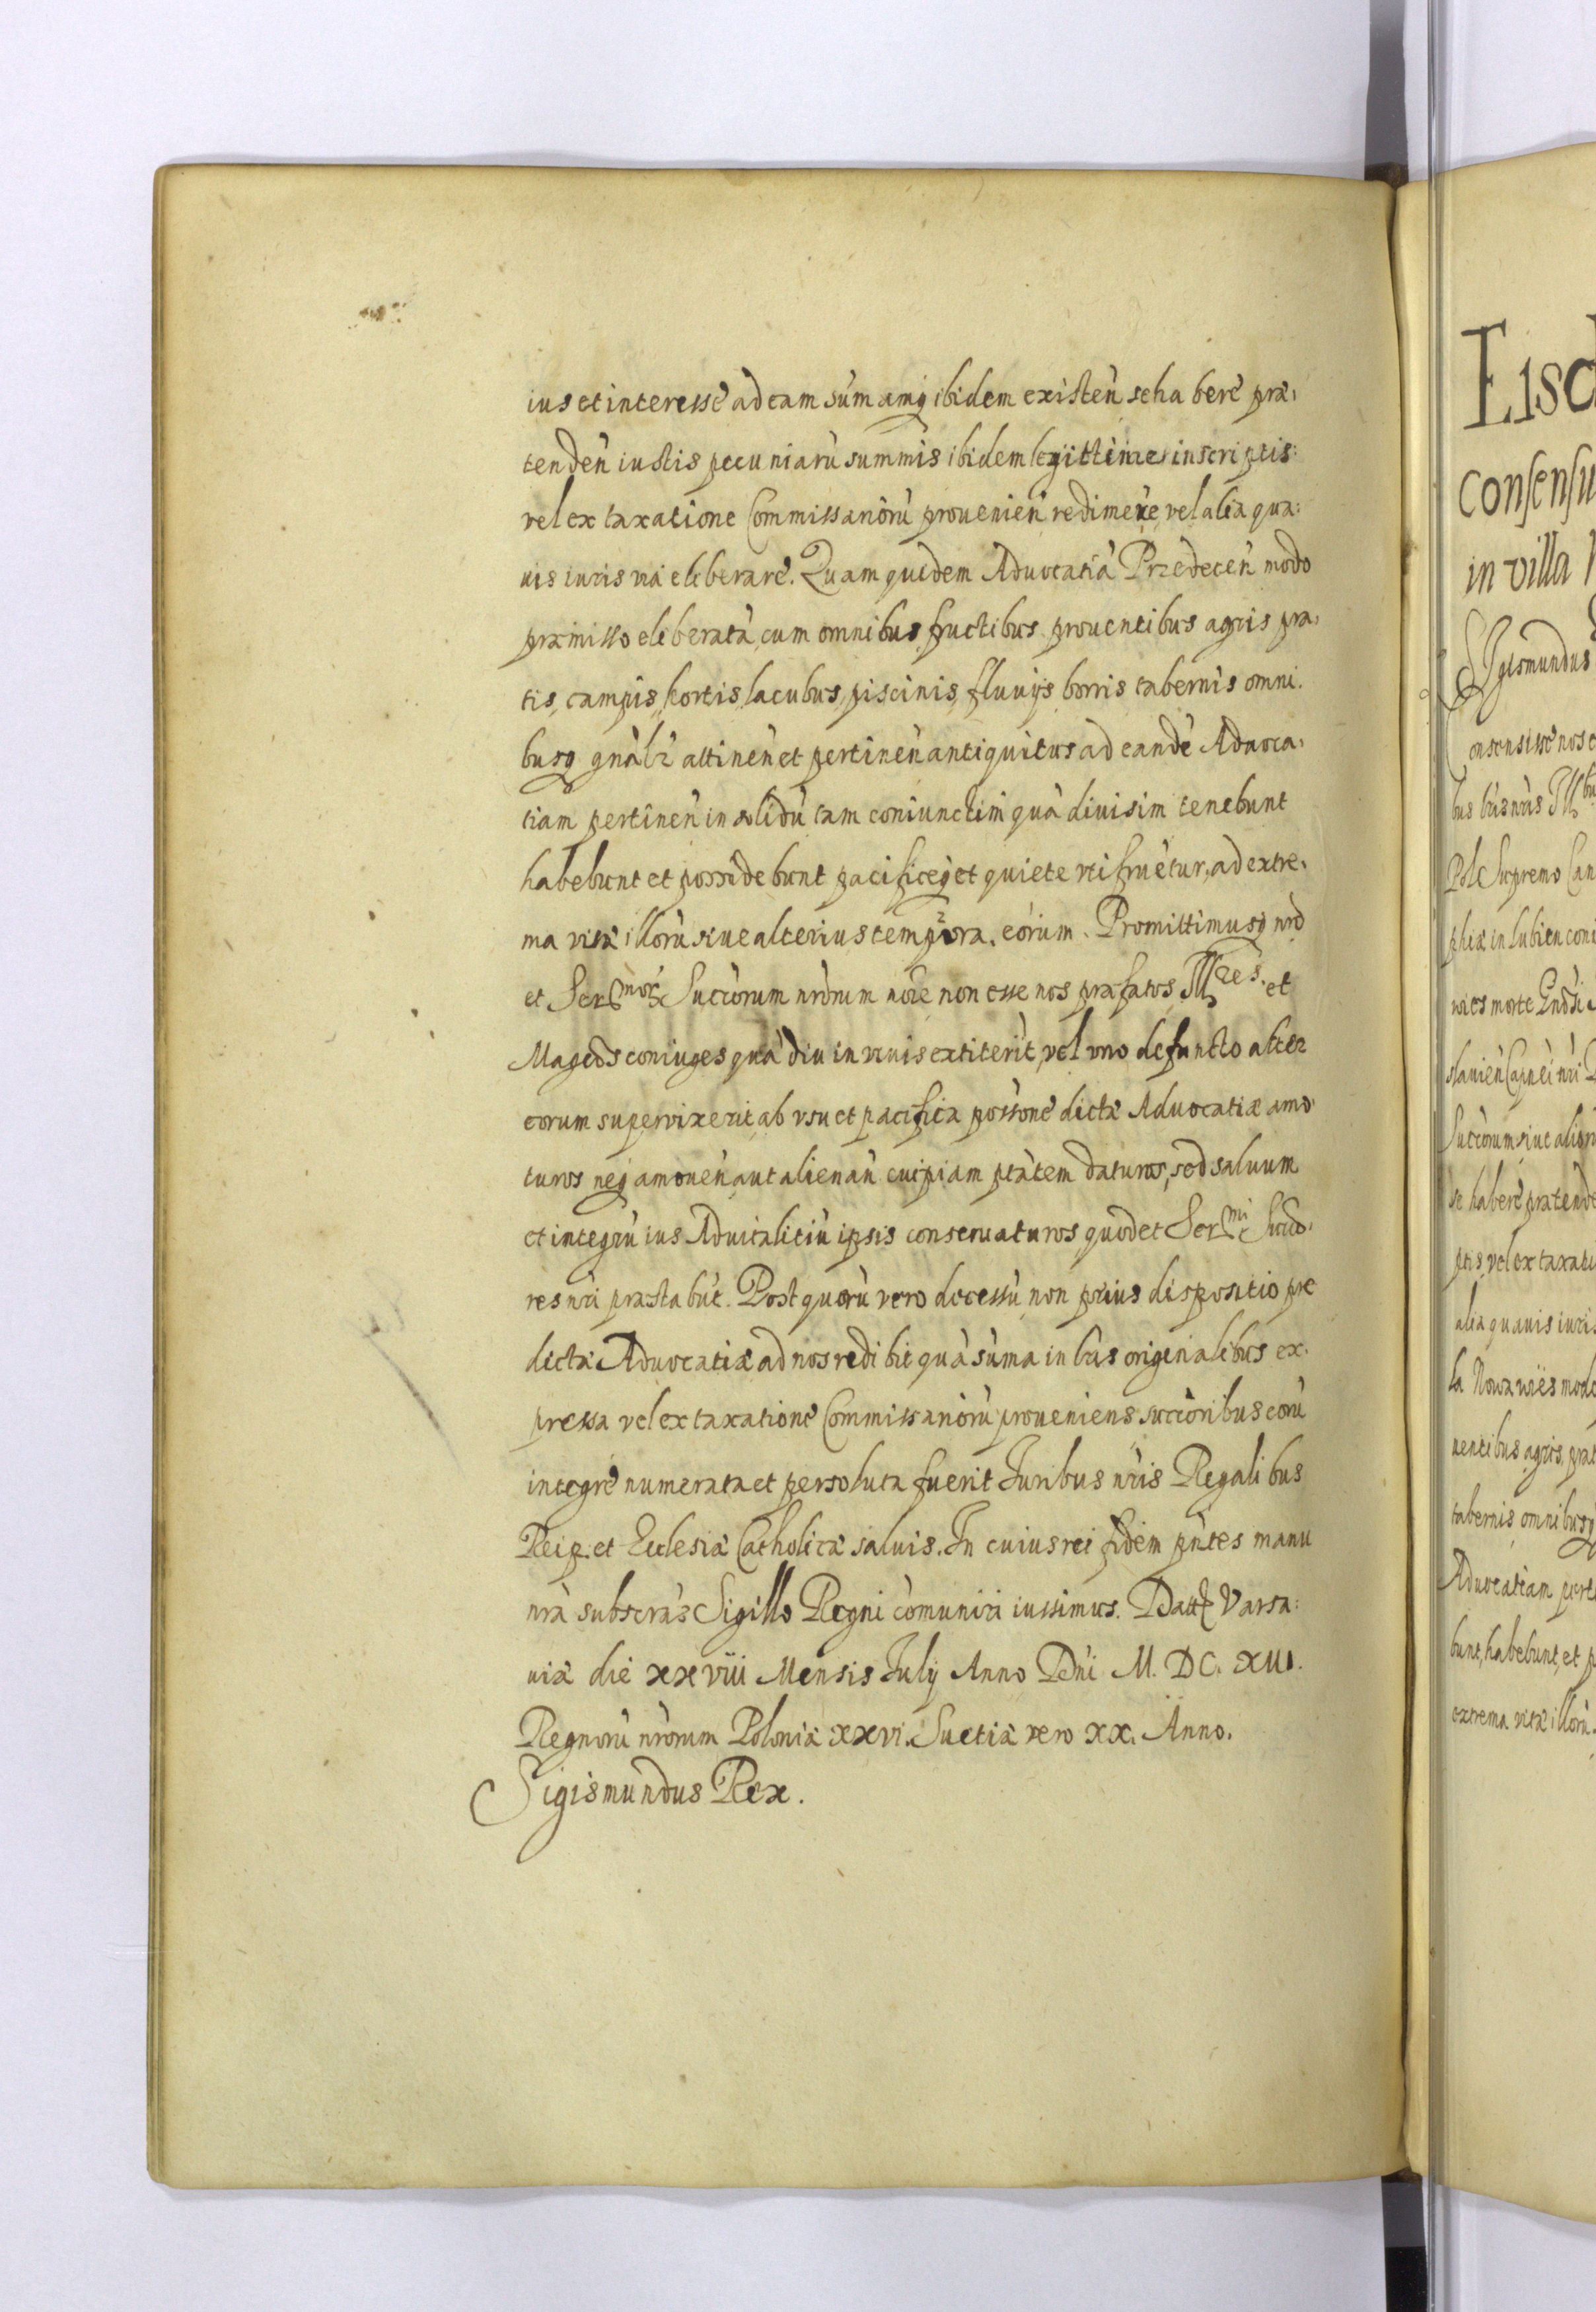 ius et interesse ad eam sum̃amq́ ibidem existeñ se habere præ,
tendeñ iustis pecuniarũ summis ibidem legittime inscriptis:
vel ex taxatione Commissariorũ provenieñ redimere, vel alia qua:
uis iuris via eleberare. Quam quidem Advocatiã Prædeceñ modo
præmisso eleberatã, cum omnibus fructibus proventibus agris pra,
tis, campis, hortis, lacubus, piscinis, fluvijs borris tabernis omni.
busq gñalr attineñ et pertineñ antiquitus ad eandẽ Advoca,
tiam pertineñ in solidũ tam coniunctim quã divisim tenebunt
habebunt et possidebunt pacificeq́ et quiete uti fruẽtur, ad extre,
ma vitæ illorũ sive alterius tempora, eorum. Promittimusq nrõ
et Sermor Succorum nrõrum noĩe non esse nos præfatos Illres. et
Magcos coniuges quã diu in vivis extiterĩt, vel uno defuncto alter
eorum supervixerit ab usu et pacifica possõne dictæ Advocatiæ amo
turos neq́ amoueñ aut alienañ cuipiam ptãtem daturos, sed salvum
et integrũ ius Advitalitiũ ipsis conservaturos, quod et Sermi Succo,
res nri præstabũt. Post quorũ vero decessũ non prius dispositio præ
dictæ Advocatiæ ad nos redibit quã sum̃a in lris originalibus ex,
pressa vel ex taxatione Commissariorũ proveniens succoribus eorũ
integre numerata et persoluta fuerit Iuribus nris Regalibus
Reip. et Ecclesiæ Catholicæ salvis. In cuius rei fidem pñtes manu
nra subscras Sigillo Regni cõmuniri iussimus. Datt Varsa:
viæ die xxviii Mensis Iulij Anno Dñi M. DC. XIII.
Regnorũ nrõrum Poloniæ xxvi. Suetiæ vero xx. Anno.
Sigismundus Rex.
Consensu
in villa
Sigismundus
Consensisse nos
bus lris nris Illbu
Pol Supremo Can
phiæ in Lubien
wies morte
se habere prætende
ptis, vel ex taxati
alia quavis iuris
la Nowawies modo
ventibus agris, prat
tabernis omnibusq
Advocatiam pert
bunt, habebunt, et p
extrema vitæ illorũ.